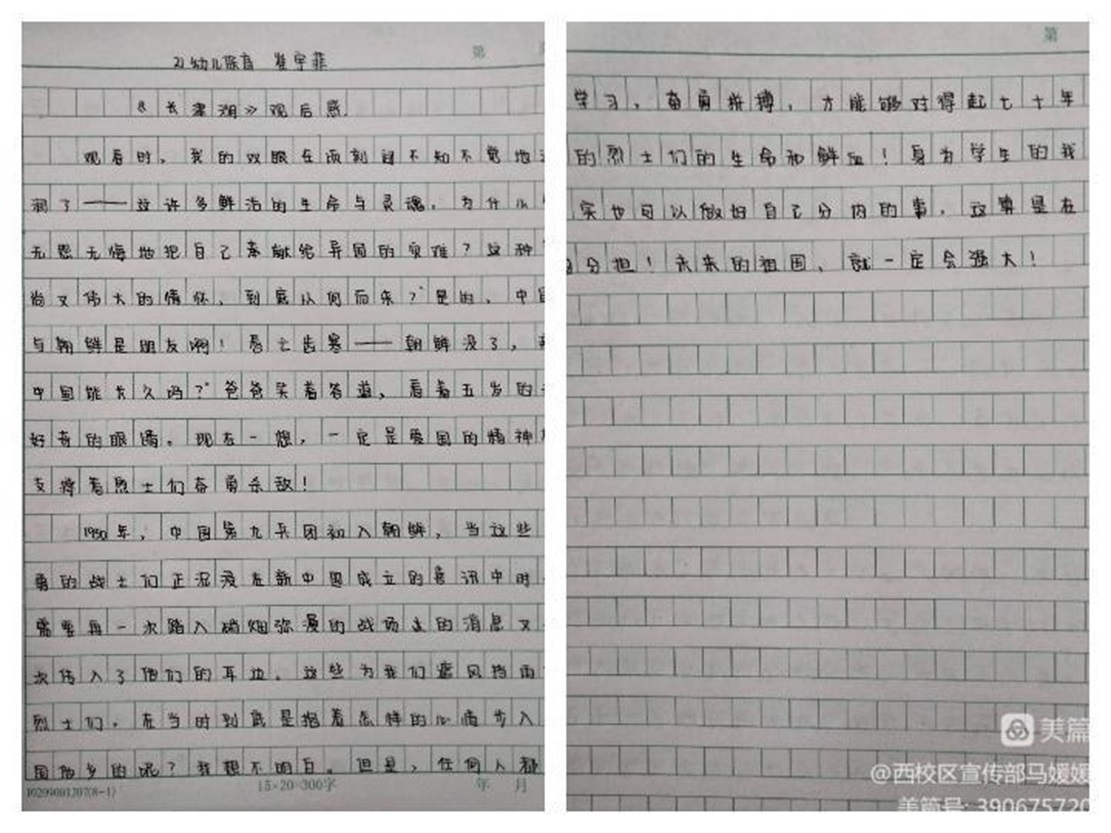 第
21幼儿保育 崔宇菲
《长津湖》观后感.
观看时，我的双眼在顷刻间不知不觉地
润了——这许多鲜活的生命与灵魂，为什么
无怨无悔地把自己奉献给异国的灾难？这种
尚又伟大的情怀，到底从何而来？"是的，中国
与朝鲜是朋友啊！唇亡齿寒——朝鲜没了，
中国能长久吗？"爸爸笑着答道，看着五岁的
好奇的眼睛。现在一想，一定是爱国的精神
支撑着烈士们奋勇杀敌！
1950年，中国第九兵团初入朝鲜，当这些
勇的战士们正沉浸在新中国成立的喜讯中时
需要再一次踏入硝烟弥漫的战场上的消息又
次传入了他们的耳边。这些为我们遮风挡雨
烈士们，在当时到底是抱着怎样的心情步入
国他乡的呢？我想不明白。但是，任何人都
15×20=300字
年 月
第
学习，奋勇拼搏，才能够对得起七十年
的烈士们的生命和鲜血！身为学生的我
实也可以做好自己分内的事，这算是在
分担！未来的祖国，就一定会强大！
美篇
@西校区宣传部马媛媛
美篇号: 390675720